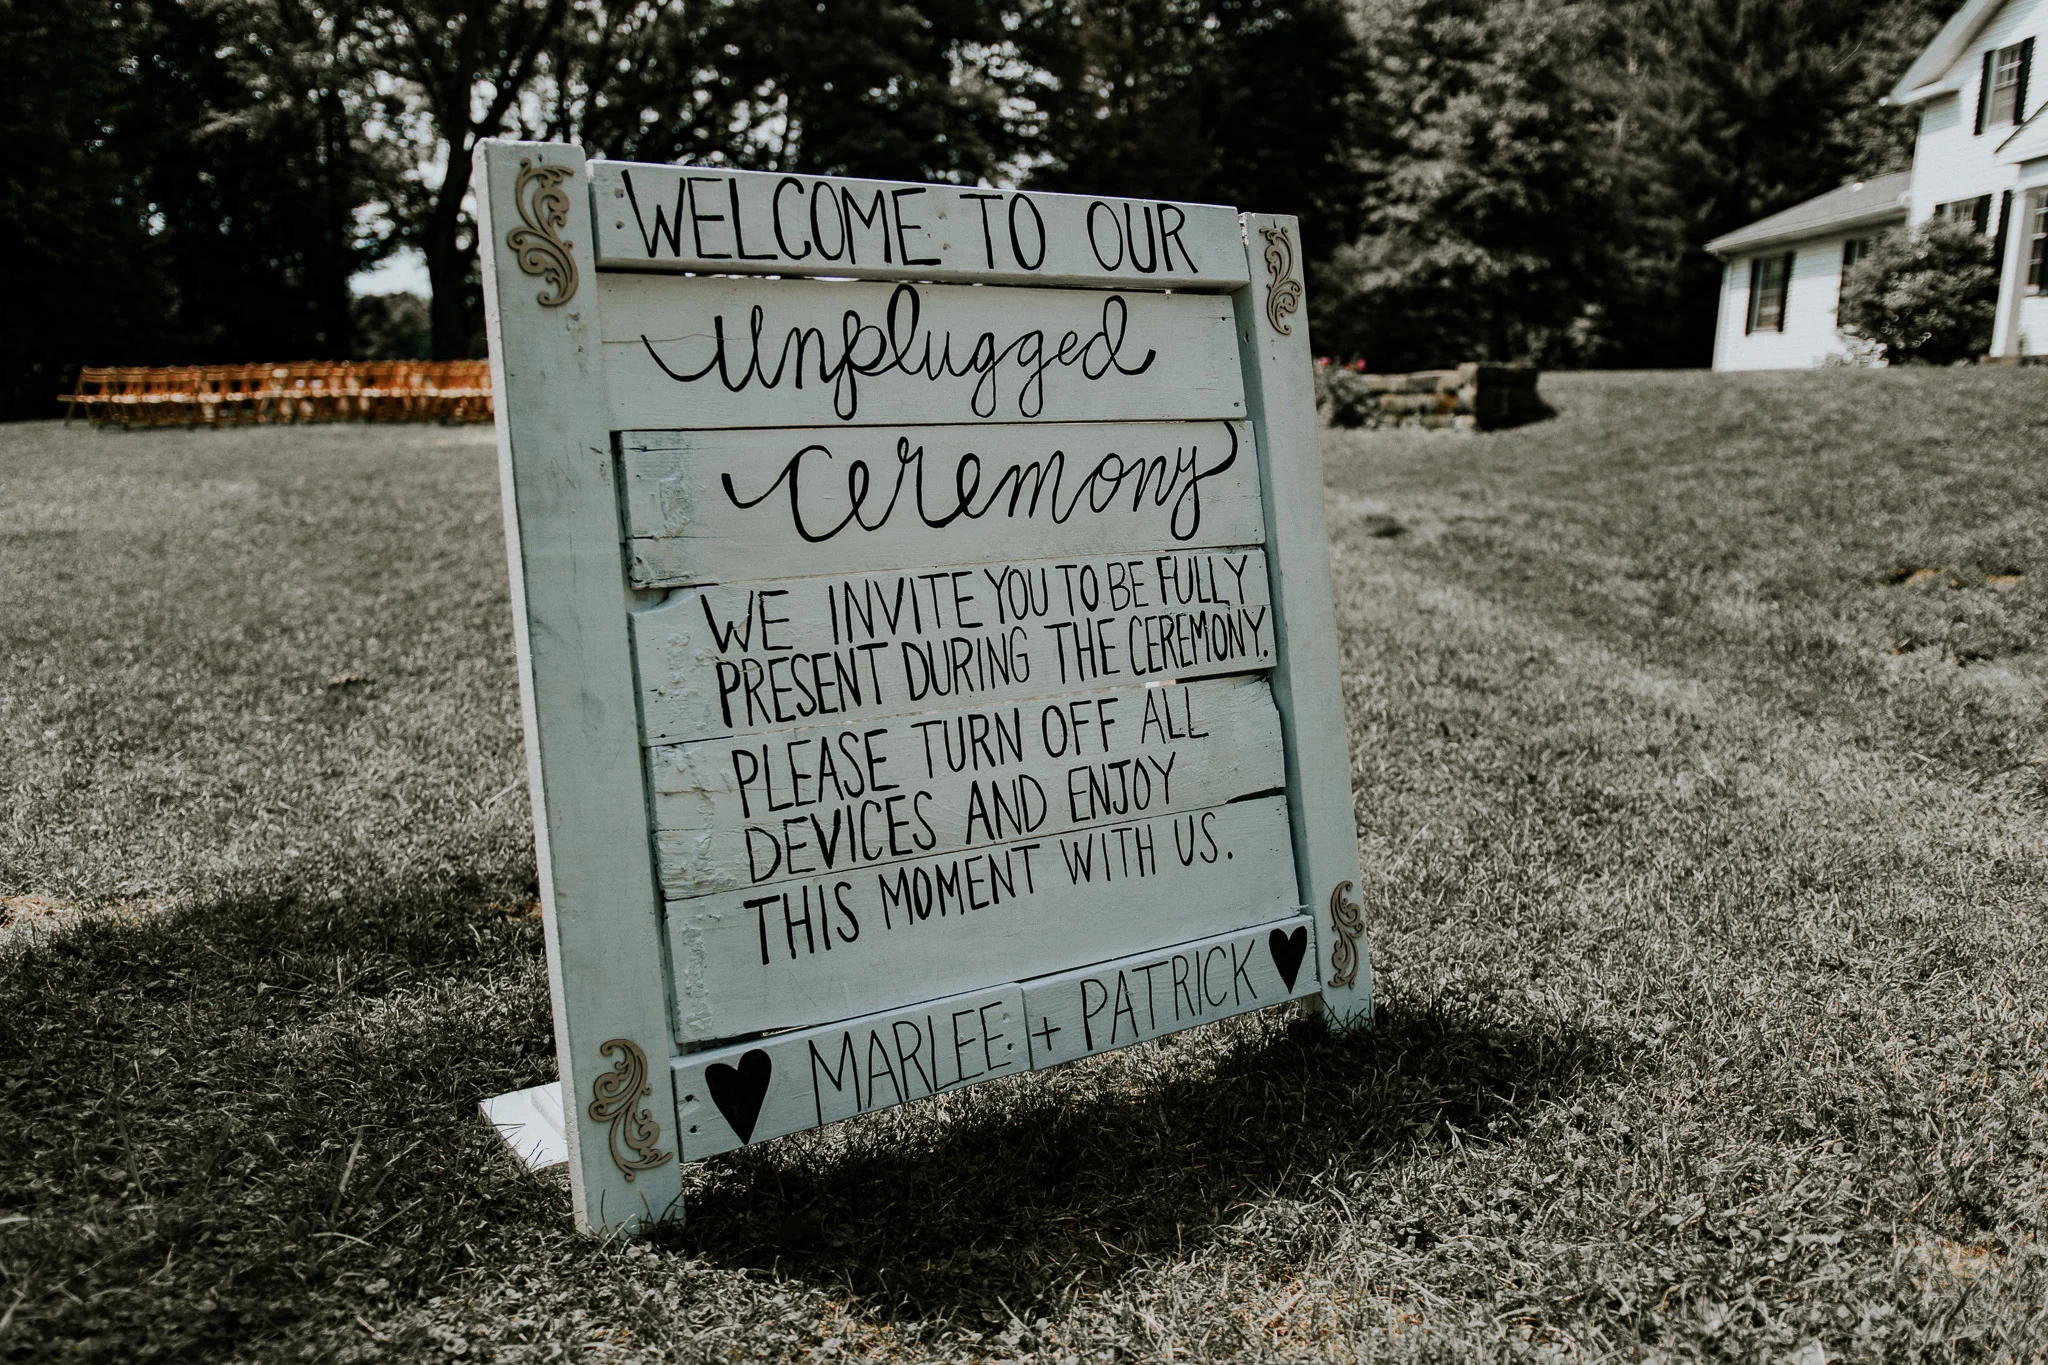 WELCOME TO OUR
unplugged
ceremony
WE INVITE YOU TO BE FULLY
PRESENT DURING THE CEREMONY.
PLEASE TURN OFF ALL
DEVICES AND ENJOY
THIS MOMENT WITH US.
MARLEE + PATRICK